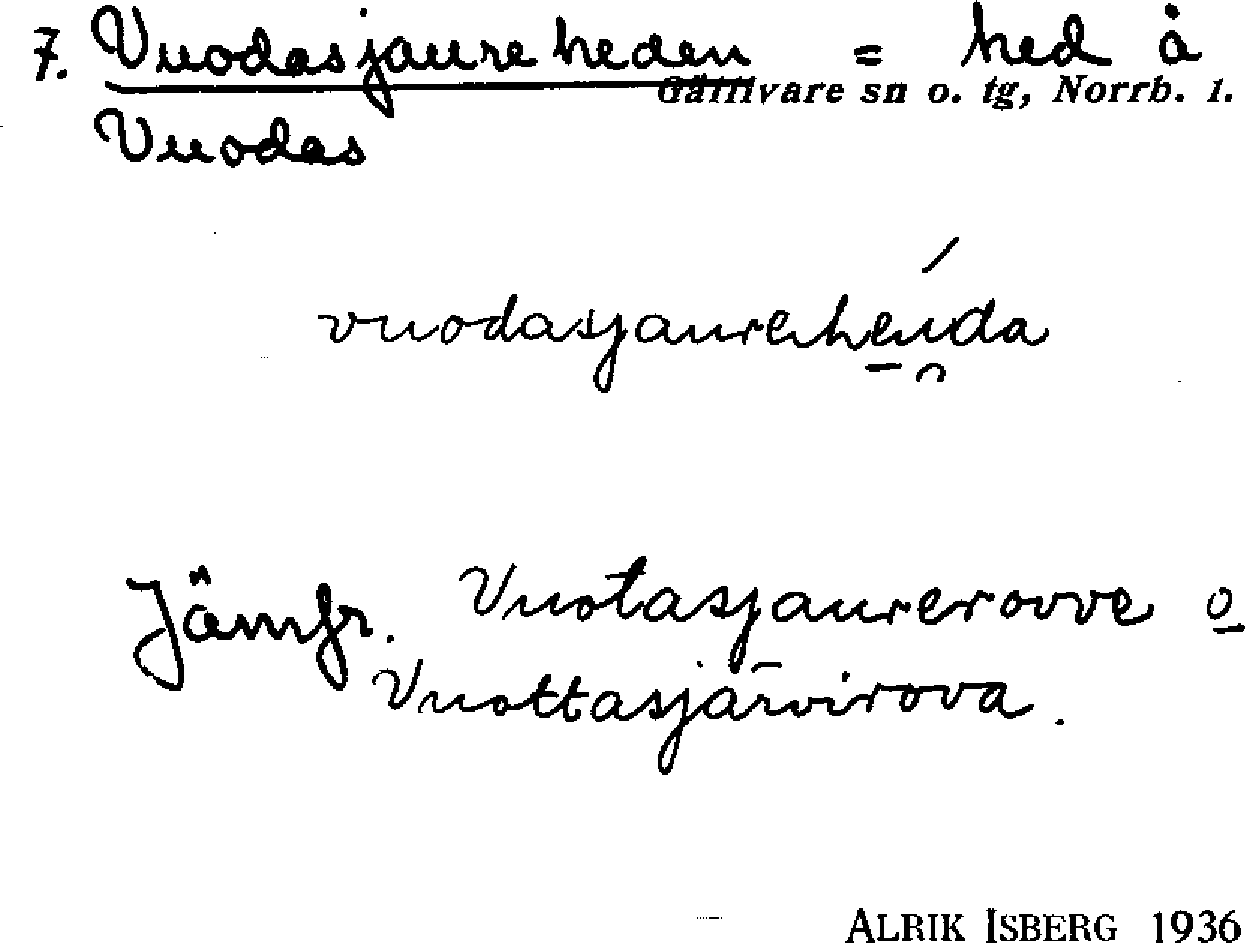 7. Vuodasjaureheden = hed å
Gällivare sn o. tg, Norrb. l.
Vuodas
vuodasjaurehei̯da
Jämfr. Vuotasjaurerovve o
Vuottasjärvirova.
ALRIK ISBERG 1936